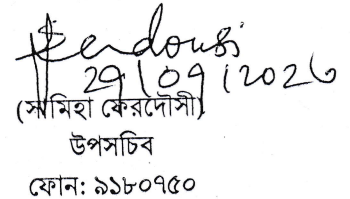 Ferdousi
29/09/2020
(সামিহা ফেরদৌসী)
উপসচিব
ফোন: ৯১৮০৭৫০